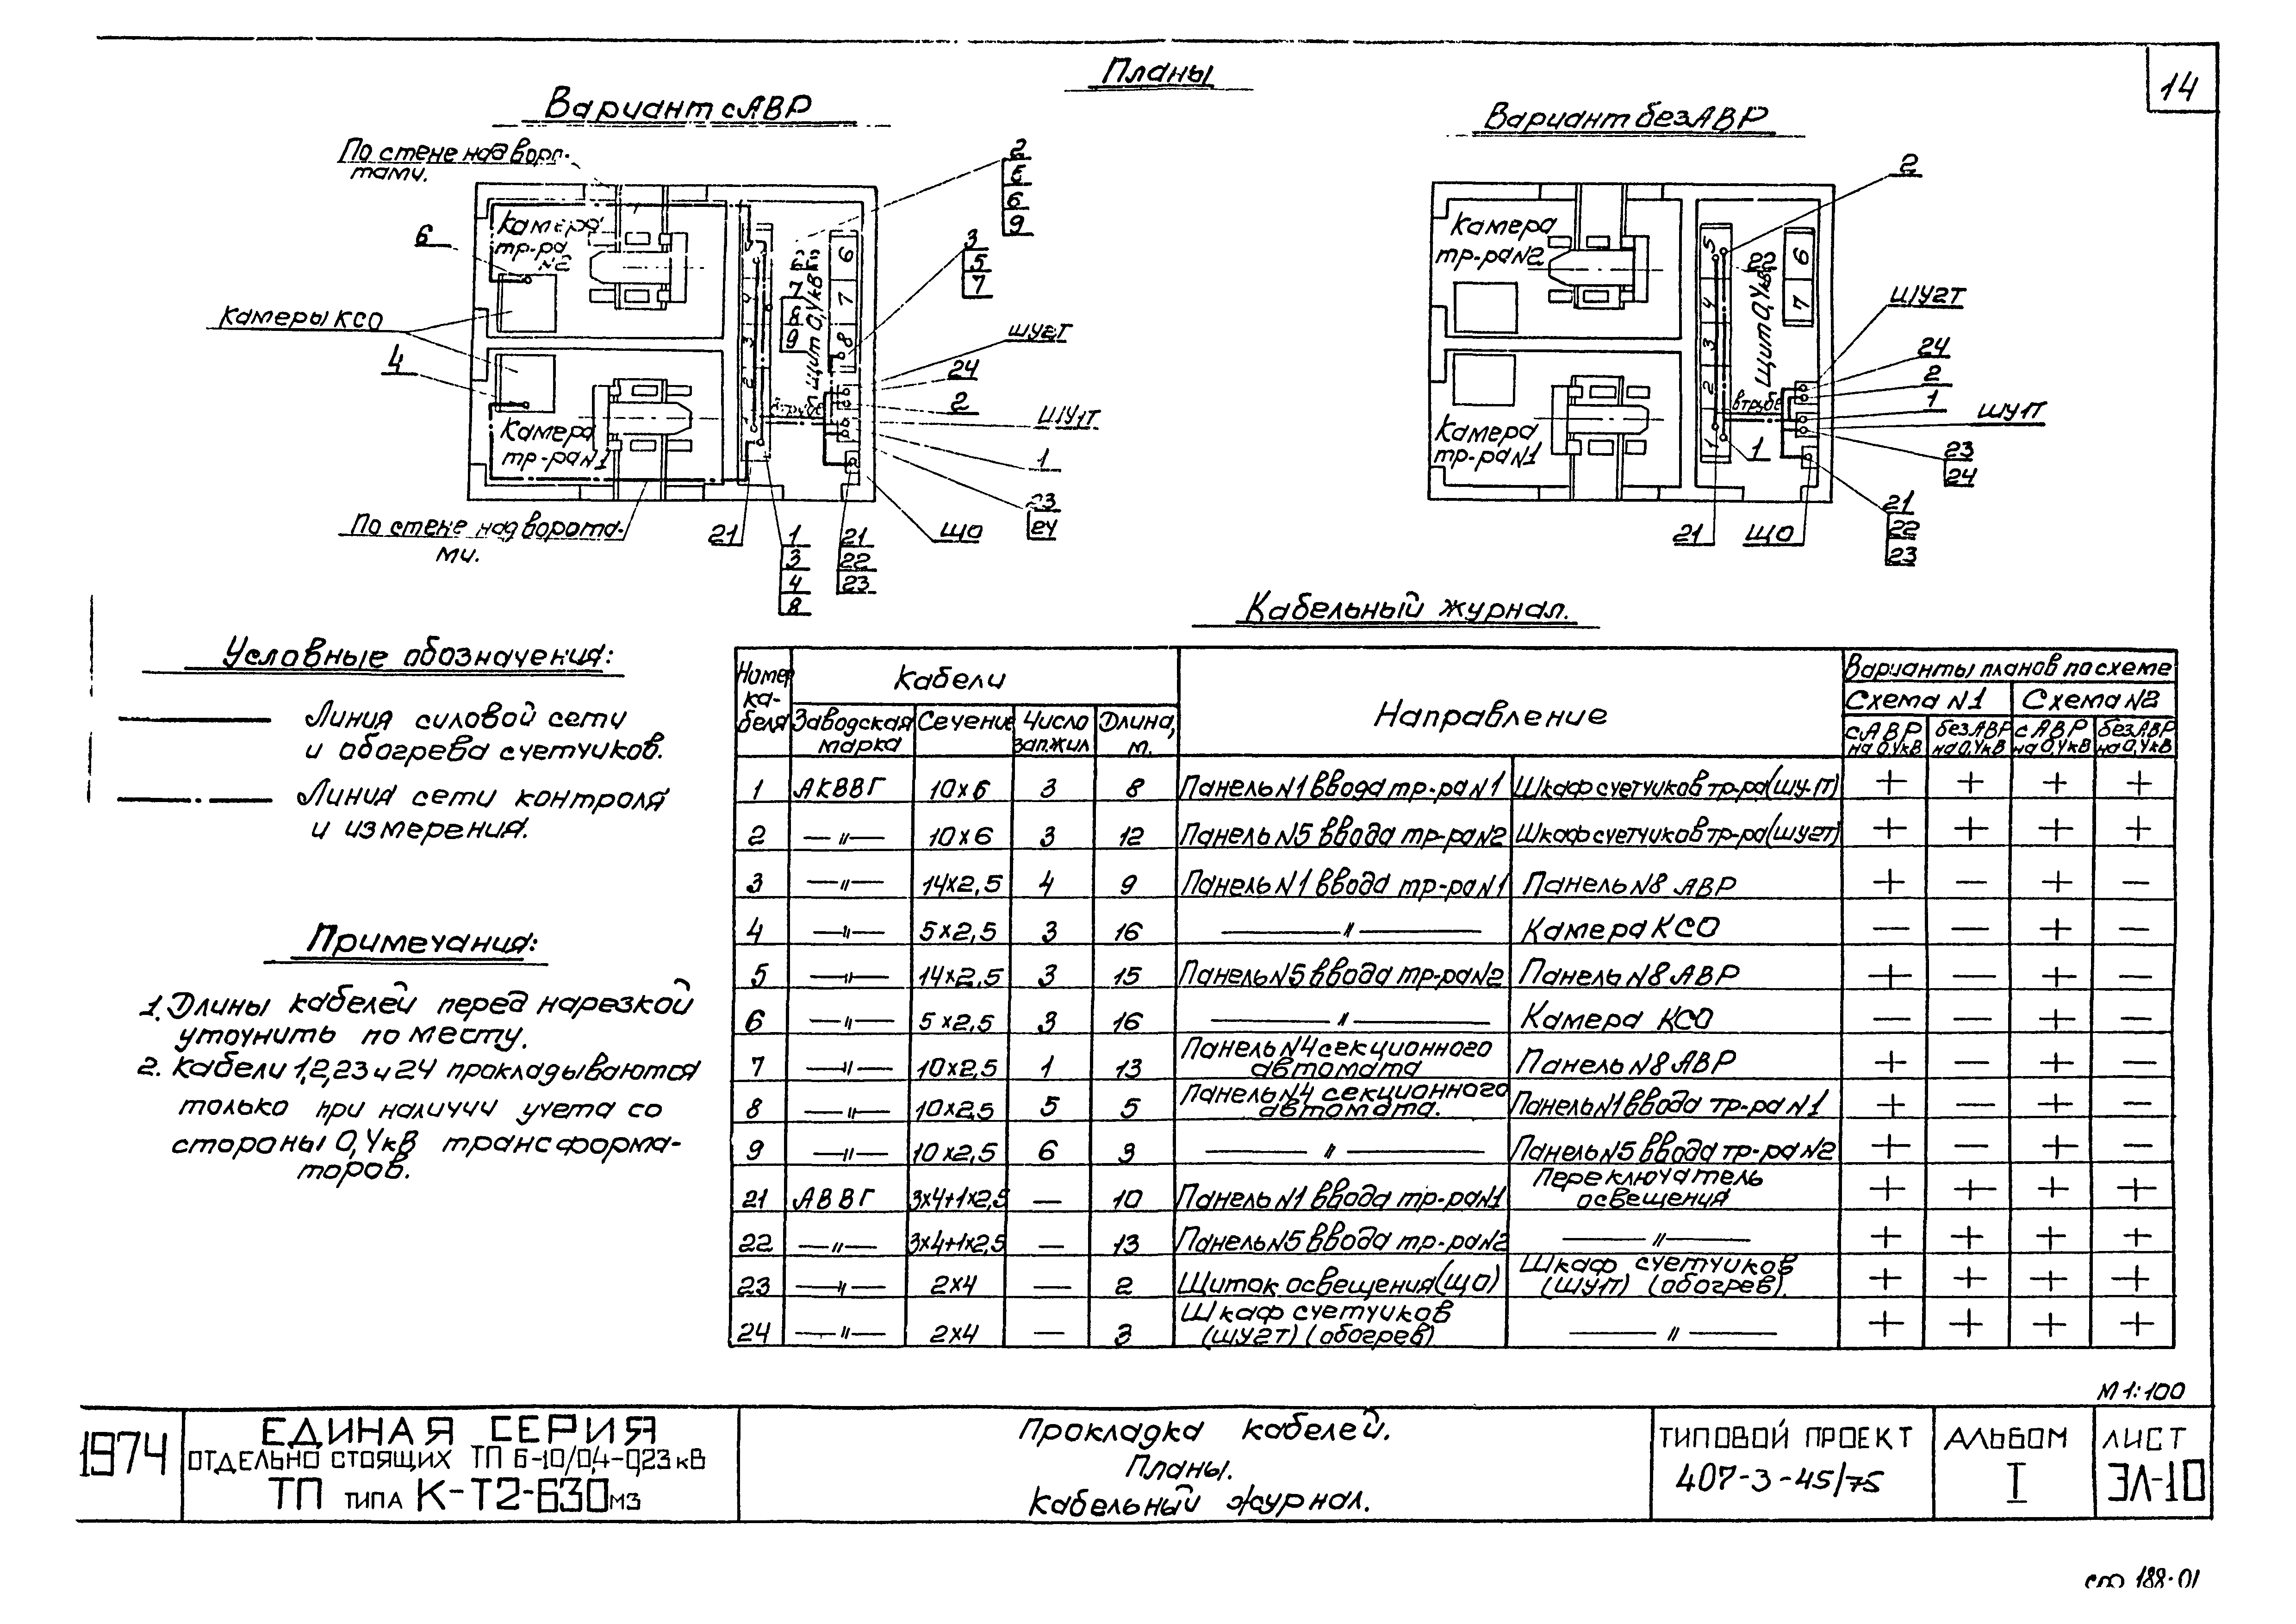 14
Планы
Вариант с АВР
По стене над воро-
тами.
Камера
тр-ра
N2
6
Камеры КСО
4
Камера
тр-ра N1
По стене над ворота-
ми.
Щит 0,4кВ
7
8
9
6
7
8
2
6
9
3
5
7
ШУ2Т
24
2
ШУ1Т
1
23
24
ЩО
21
1
3
4
8
21
22
23
Вариант без АВР
Камера
тр-ра N2
Камера
тр-ра N1
5
4
3
2
1
22
Щит 0,4кВ
6
7
в трубе
2
ШУ2Т
24
2
1
ШУ1Т
23
24
1
21
ЩО
21
22
23
Условные обозначения:
Линия силовой сети
и обогрева счетчиков.
Линия сети контроля
и измерения.
Примечания:
1. Длины кабелей перед нарезкой
уточнить по месту.
2. Кабели 1,2,23 и 24 прокладываются
только при наличии учета со
стороны 0,4кВ трансформа-
торов.
Кабельный журнал.
Номер ка-беля Кабели Направление Варианты планов по схеме
Схема N1 Схема N2
Заводская марка Сечение Число зап.жил Длина, м. с АВР на 0,4кВ без АВР на 0,4кВ с АВР на 0,4кВ без АВР на 0,4кВ
1 АКВВГ 10×6 3 8 Панель N1 ввода тр-ра N1 Шкаф счетчиков тр-ра (ШУ1Т) + + + +
2 —〃— 10×6 3 12 Панель N5 ввода тр-ра N2 Шкаф счетчиков тр-ра (ШУ2Т) + + + +
3 —〃— 14×2,5 4 9 Панель N1 ввода тр-ра N1 Панель N8 АВР + — + —
4 —〃— 5×2,5 3 16 —〃— Камера КСО — — + —
5 —〃— 14×2,5 3 15 Панель N5 ввода тр-ра N2 Панель N8 АВР + — + —
6 —〃— 5×2,5 3 16 —〃— Камера КСО — — + —
7 —〃— 10×2,5 1 13 Панель N4 секционного автомата Панель N8 АВР + — + —
8 —〃— 10×2,5 5 5 Панель N4 секционного автомата. Панель N1 ввода тр-ра N1 + — + —
9 —〃— 10×2,5 6 3 —〃— Панель N5 ввода тр-ра N2 + — + —
21 АВВГ 3×4+1×2,5 — 10 Панель N1 ввода тр-ра N1 Переключатель освещения + + + +
22 —〃— 3×4+1×2,5 — 13 Панель N5 ввода тр-ра N2 —〃— + + + +
23 —〃— 2×4 — 2 Щиток освещения (ЩО) Шкаф счетчиков (ШУ1Т) (обогрев). + + + +
24 —〃— 2×4 — 3 Шкаф счетчиков (ШУ2Т) (обогрев) —〃— + + + +
М 1:100
1974
ЕДИНАЯ СЕРИЯ
ОТДЕЛЬНО СТОЯЩИХ ТП 6-10/0,4-0,23 кВ
ТП ТИПА К-Т2-630 М3
Прокладка кабелей.
Планы.
Кабельный журнал.
ТИПОВОЙ ПРОЕКТ
407-3-45/75
АЛЬБОМ
I
ЛИСТ
ЭЛ-10
188-01